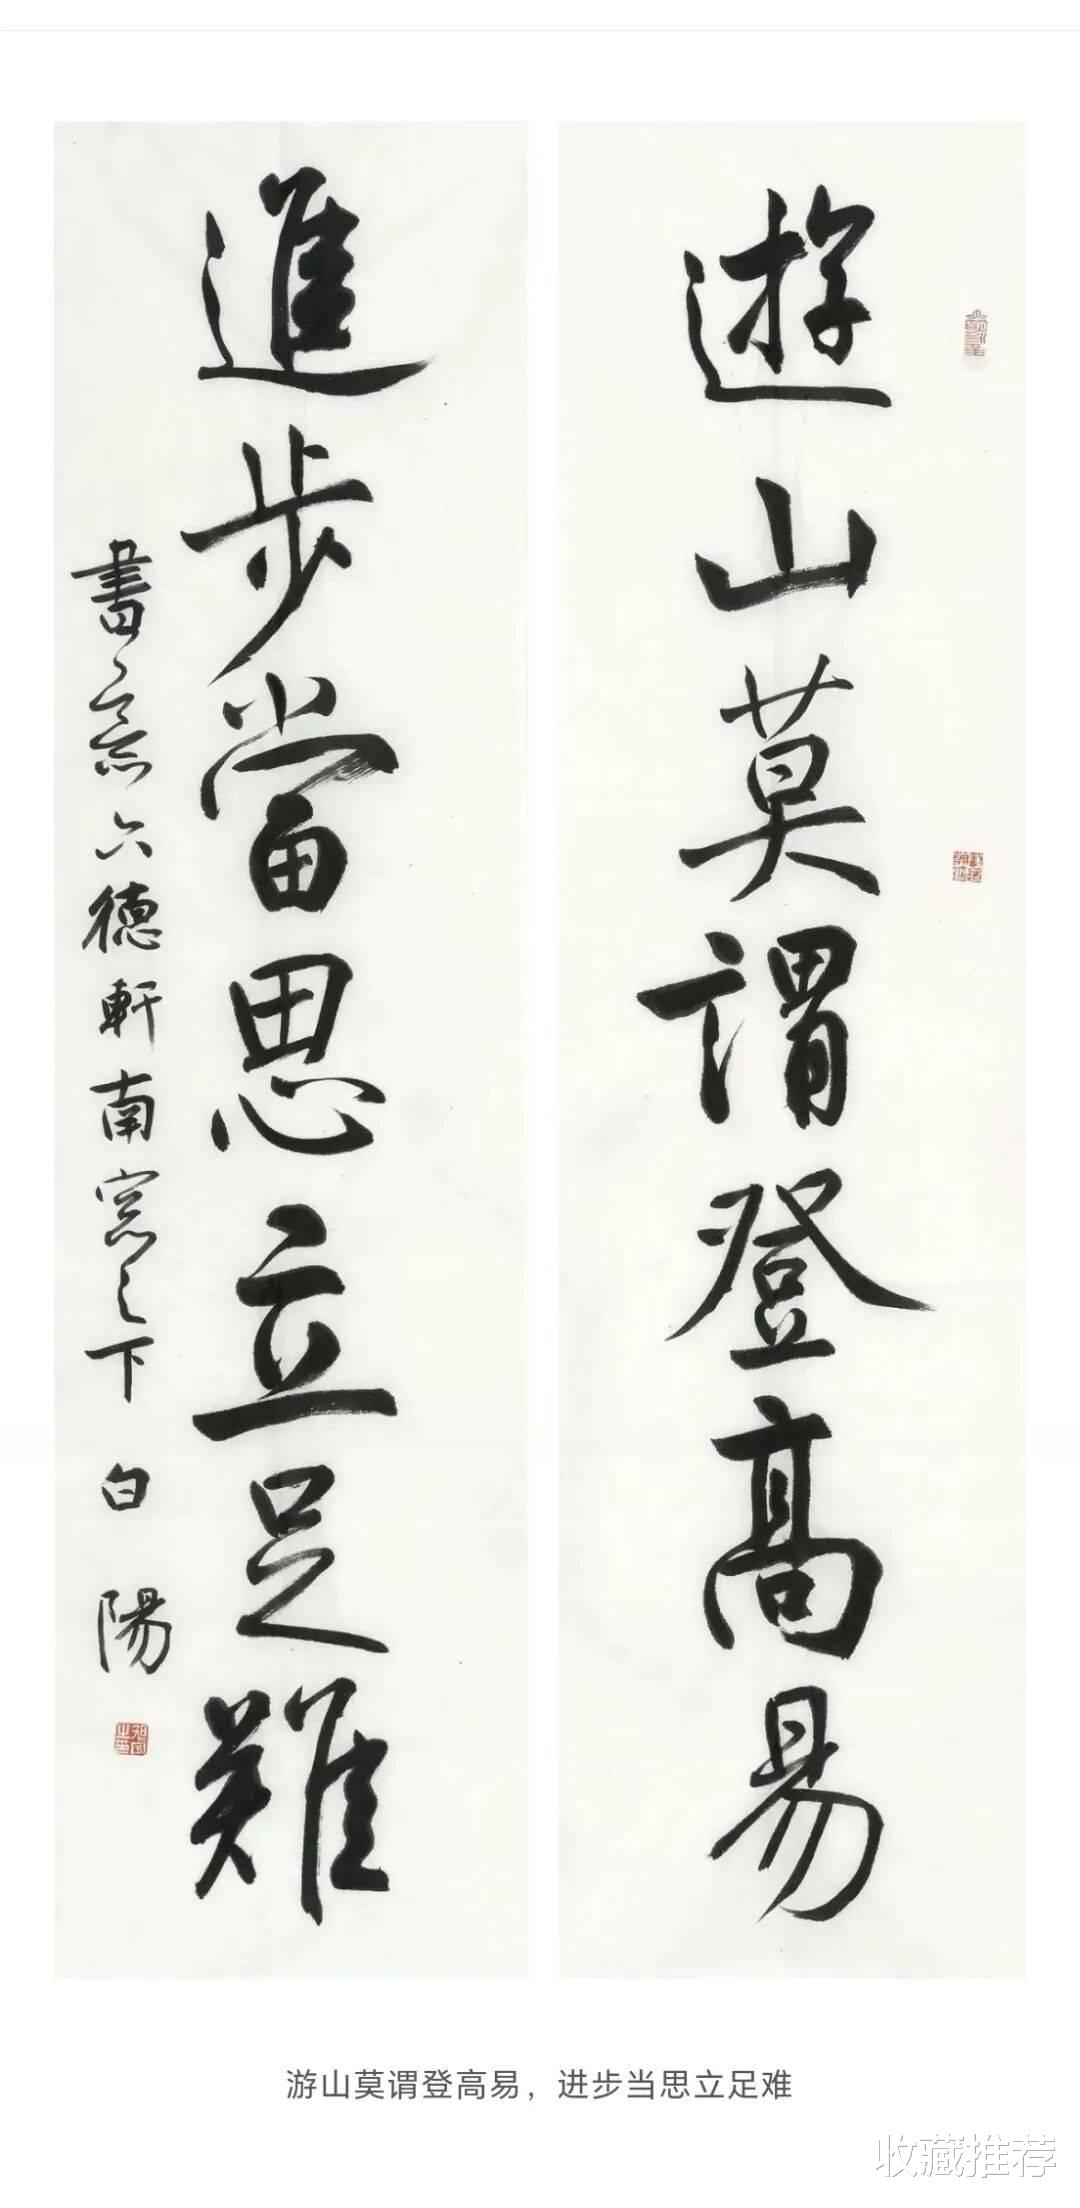 遊山莫謂登高易
進步當思立足難
書於六德軒南窓之下 白陽
游山莫谓登高易，进步当思立足难
收藏推荐